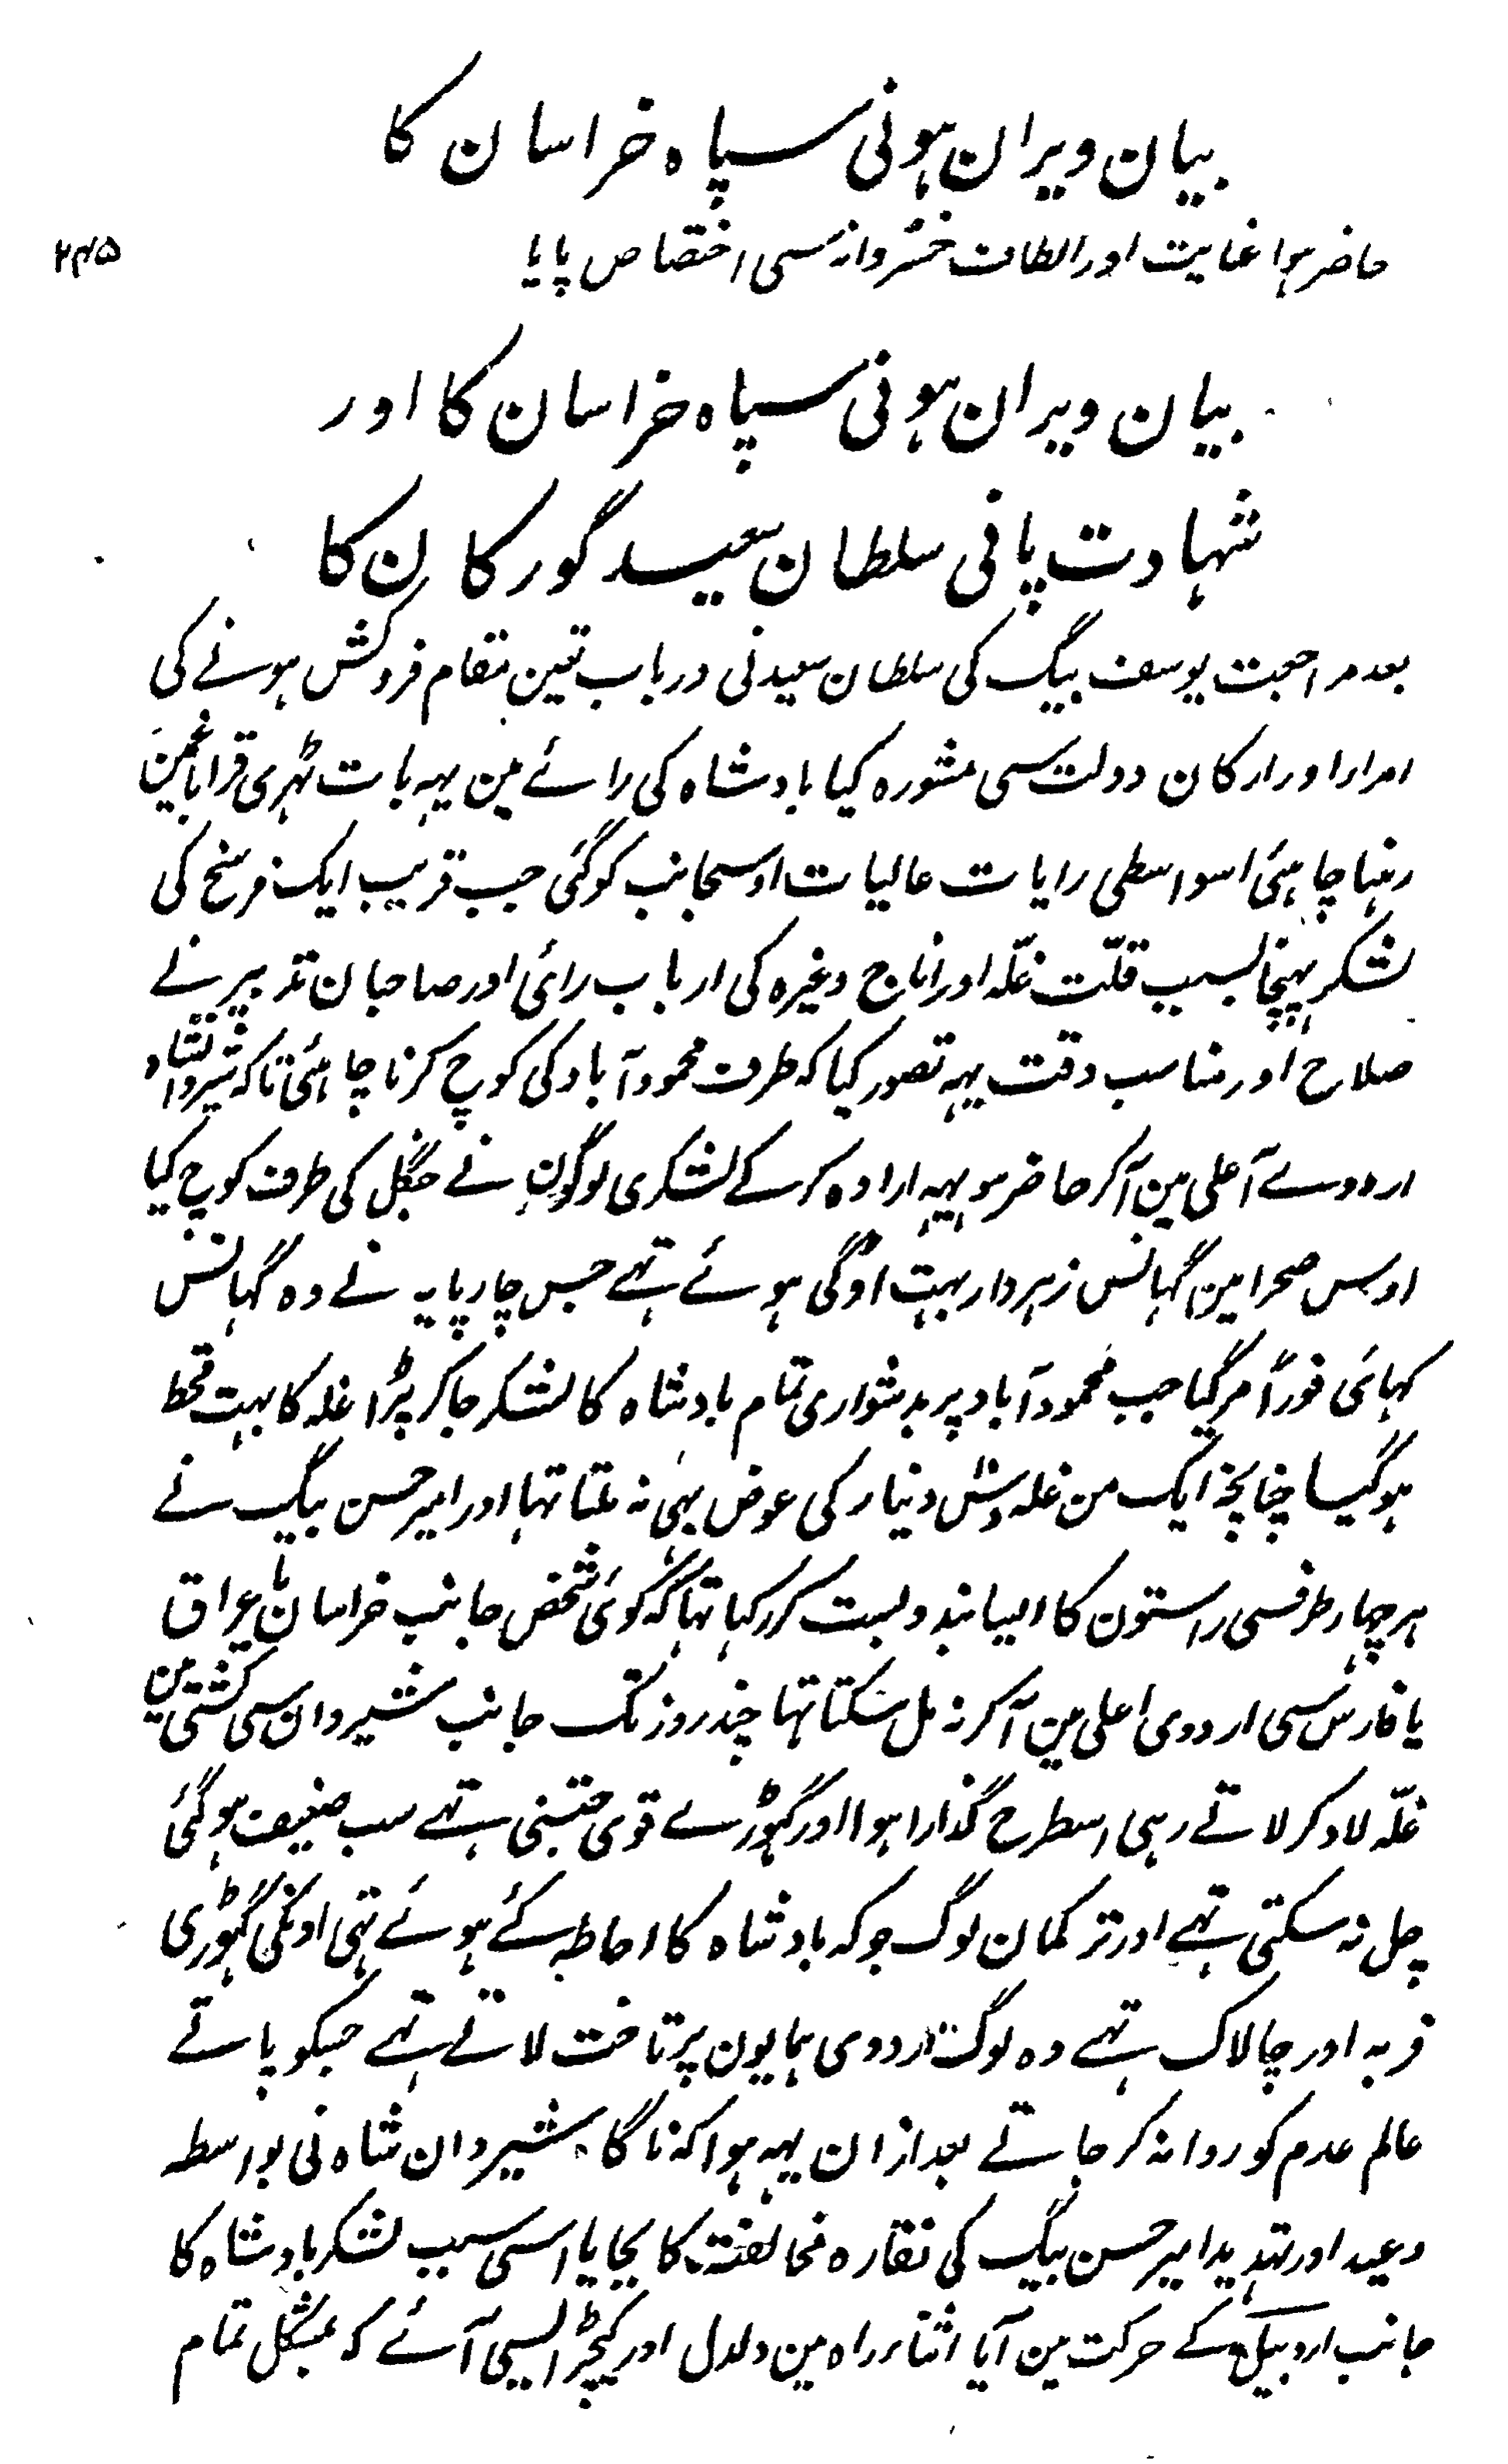 بیان ویران ہونی سپاہ خراسان کا
۲۴۵
حاضر ہوا عنایت اور الطاف خسروانہ سی اختصاص پایا
بیان ویران ہونی سپاہ خراسان کا اور
شہادت پانی سلطان سعید گورکان کا
بعد مراجعت یوسف بیگ کی سلطان سعید نی درباب تعین مقام فروکش ہونے کی
امرار اور ارکان دولت سی مشورہ کیا بادشاہ کی رائے مین یہہ بات ٹہری قراباغ مین
رہنا چاہئی اسواسطی رایات عالیات اوسجانب کو گئی جب قریب ایک فرسخ کی
لشکر پہنچا بسبب قلّت غلّہ اور اناج وغیرہ کی ارباب رائی اور صاحبان تدبیر نے
صلاح اور مناسب وقت یہہ تصور کیا کہ طرف محمود آباد کی کوچ کرنا چاہئی تاکہ شیروانشاہ
اردوے آعلی مین آکر حاضر ہو یہہ ارادہ کرکے لشکری لوگون نے جنگل کی طرف کوچ کیا
اوس صحرا مین گہانس زہردار بہت اوگی ہوئے تہے جس چارپایہ نے وہ گہانس
کہائی فوراً مرگیا جب محمود آباد پر بدشواری تمام بادشاہ کا لشکر جاکر پڑا غلہ کا بہت قحط
ہوگیا چنانچہ ایک من غلہ دش دینار کی عوض بہی نہ ملتا تہا اور امیر حسن بیگ نے
ہر چہار طرفسی راستون کا ایسا بندوبست کر رکہا تہا کہ کوئی شخص جانب خراسان یا عراق
یا فارس سی اردوی اعلی مین آکر نہ مل سکتا تہا چند روز تک جانب شیروان سی کشتی مین
غلّہ لادکر لاتے رہی اسطرح گذارا ہوا اور گہوڑے قوی جتنی تہے سب ضعیف ہوگئی
چل نہ سکتی تہے اور ترکمان لوگ جوکہ بادشاہ کا احاطہ کئے ہوئے تہی اونکی گہوڑی
فربہ اور چالاک تہے وہ لوگ اردوی ہمایون پر تاخت لاتے تہے جسکو پاتے
عالم عدم کو روانہ کر جاتے بعد ازان یہہ ہوا کہ ناگاہ شیروان شاہ نی بواسطہ
وعید اور تہدید امیر حسن بیگ کی نقارہ مخالفت کا بجایا اسی سبب لشکر بادشاہ کا
جانب اردبیل کے حرکت مین آیا اثنار راہ مین دلدل اور کیچڑ ایسی آئے کہ بمشکل تمام